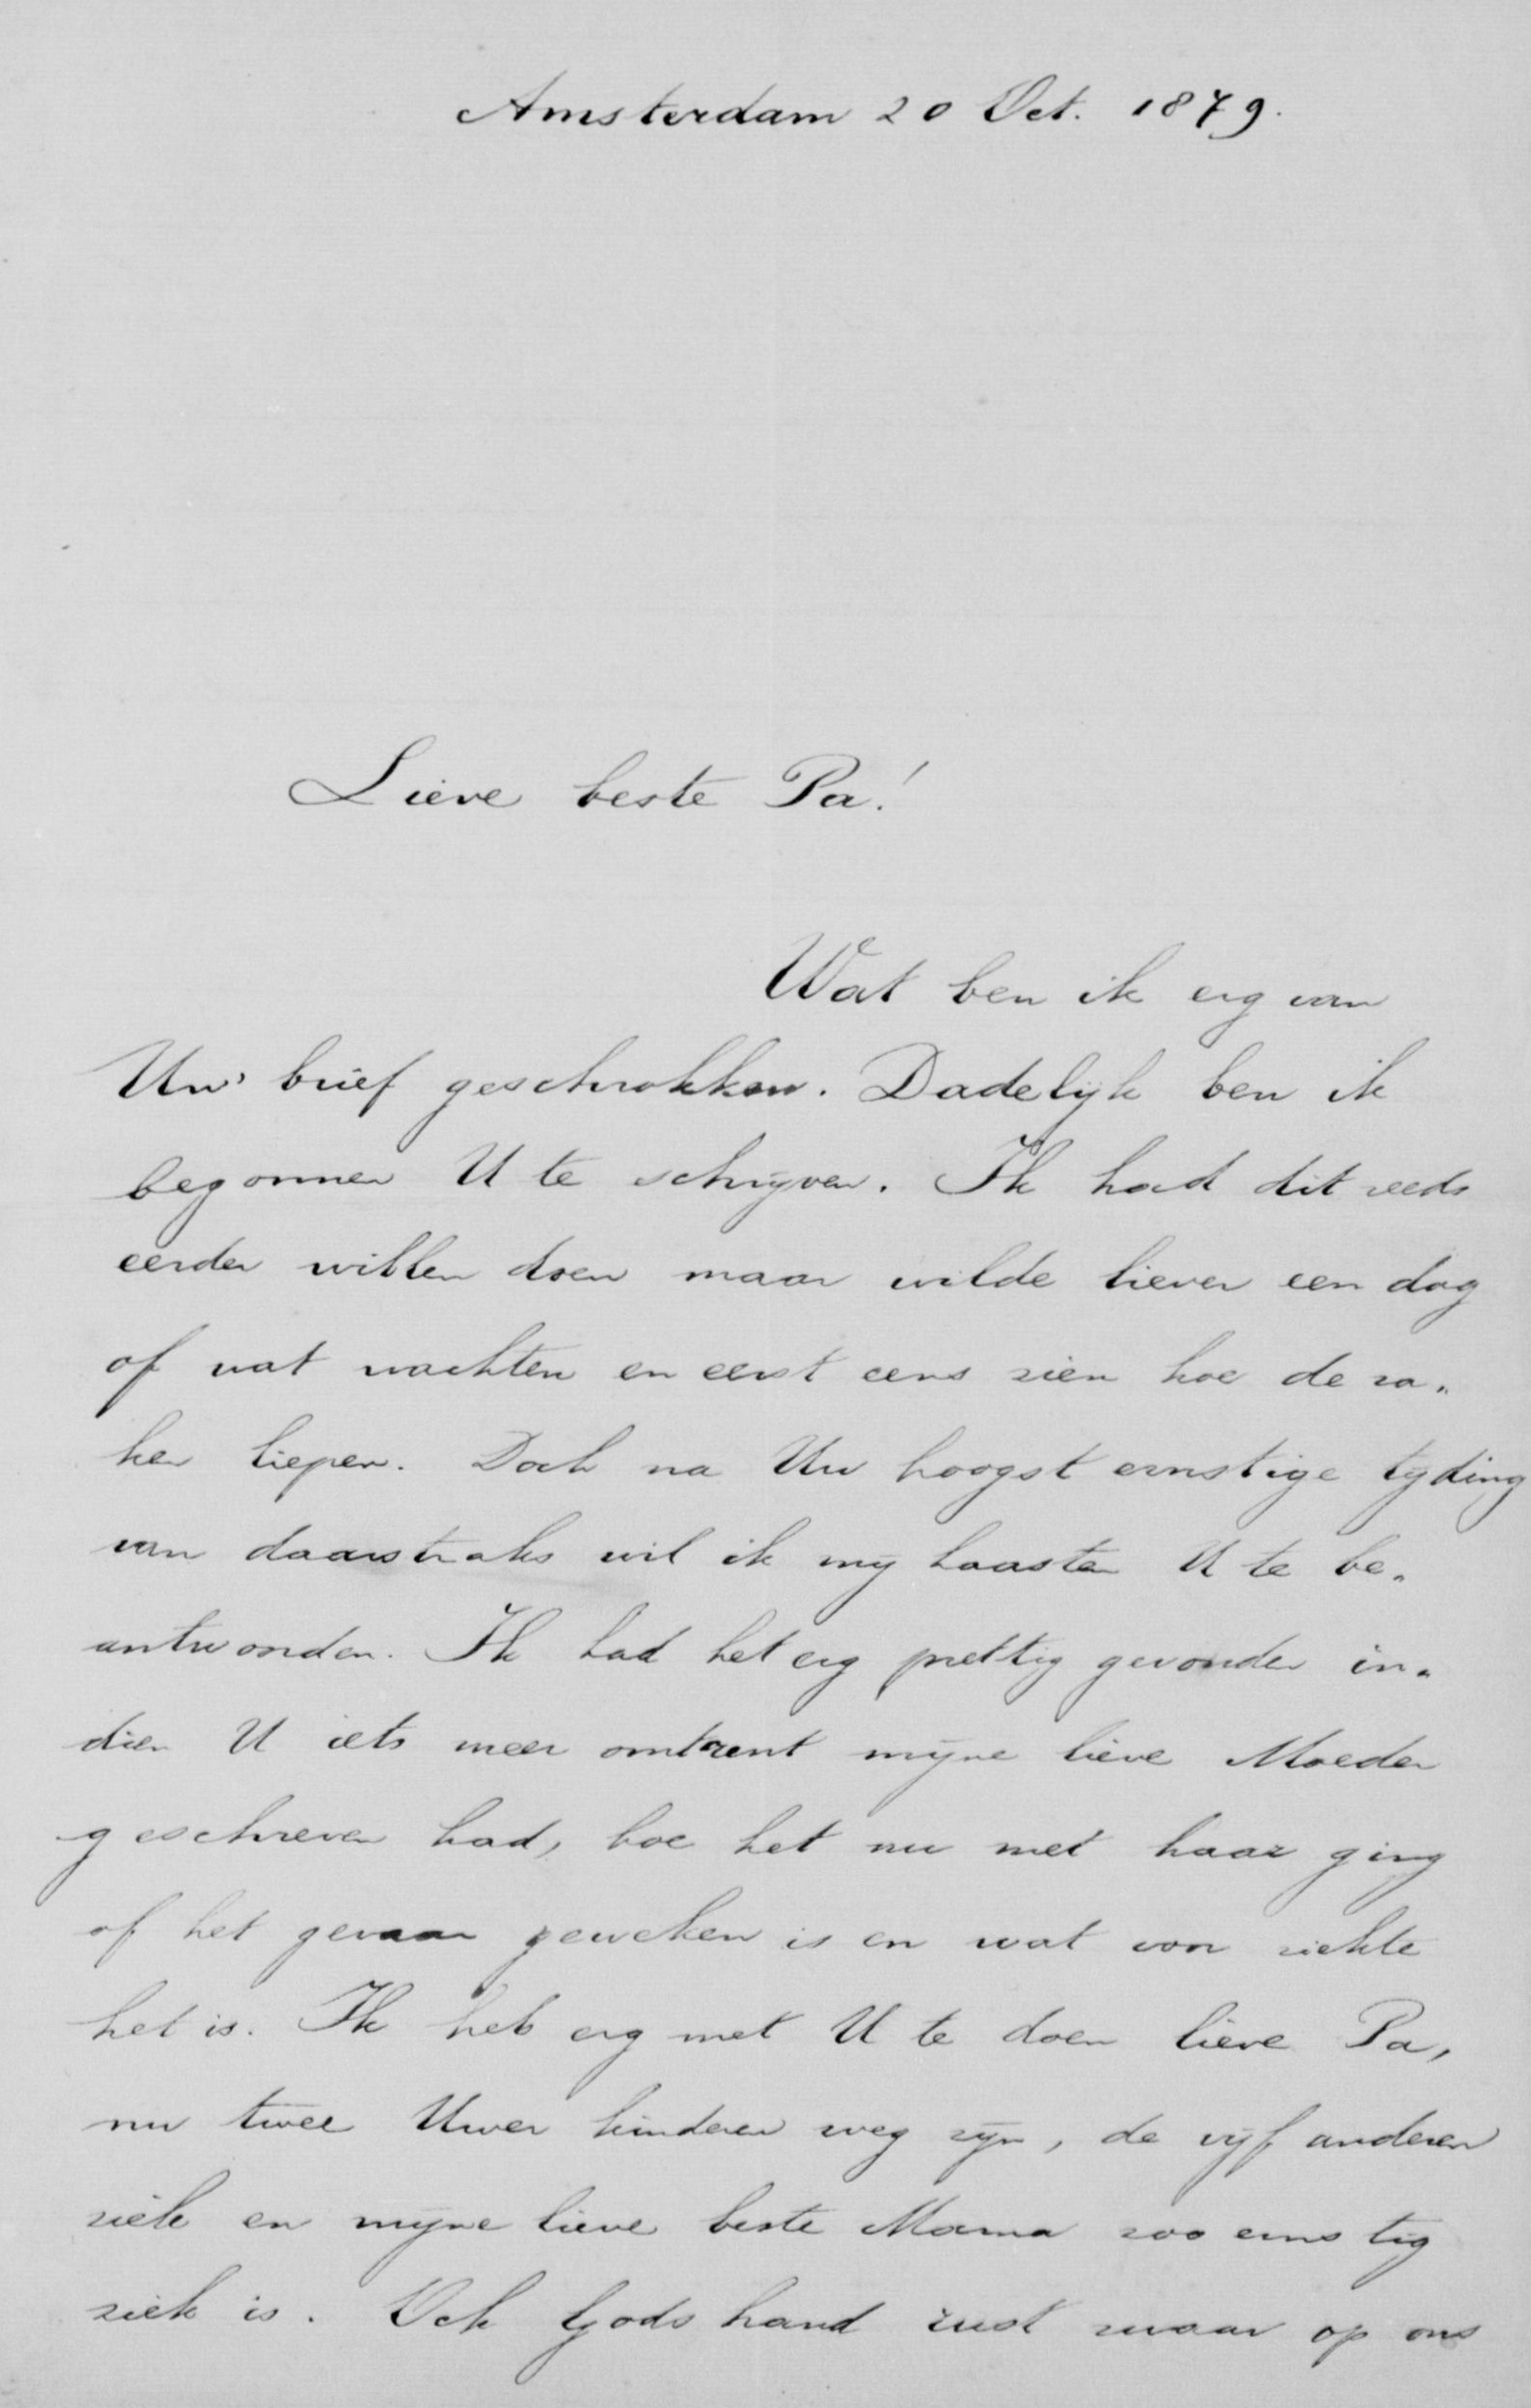 Amsterdam 20 Oct. 1879.
Lieve beste Pa!
Wat ben ik erg van
Uw brief geschrokken. Dadelijk ben ik
begonnen U te schrijven. Ik had dit reeds
eerder willen doen maar wilde liever een dag
of wat wachten en eerst eens zien hoe de za„
ken liepen. Doch na Uw hoogst ernstige tijding
van daarstraks wil ik mij haasten U te be„
antwoorden. Ik had het erg prettig gevonden in„
dien U iets meer omtrent mijne lieve Moeder
geschreven had, hoe het nu met haar ging
of het gevaar geweken is en wat voor ziekte
het is. Ik heb erg met U te doen lieve Pa,
nu twee Uwer kinderen weg zijn, de vijf anderen
ziek en mijne lieve beste Mama zoo ernstig
ziek is. Och Gods hand rust zwaar op ons